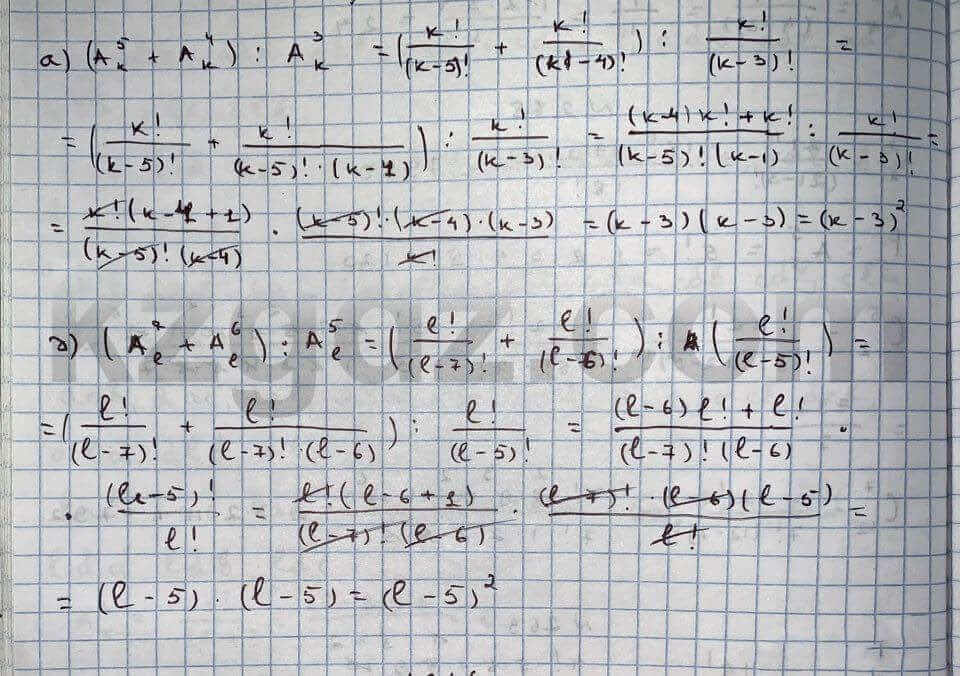 а) (A_k^5 + A_k^4) : A_k^3 = (k!/(k-5)! + k!/(k-4)!) : k!/(k-3)! =
= (k!/(k-5)! + k!/((k-5)!·(k-1))) : k!/(k-3)! = ((k-4)k!+k!)/((k-5)!(k-1)) : k!/(k-3)! =
= k!(k-4+1)/((k-5)!(k-4)) · (k-5)!·(k-4)·(k-3)/k! = (k-3)(k-3) = (k-3)^2
kzgdz.com
г) (A_e^7 + A_e^6) : A_e^5 = (l!/(l-7)! + l!/(l-6)!) : (l!/(l-5)!) =
= (l!/(l-7)! + l!/((l-7)!·(l-6))) : l!/(l-5)! = ((l-6)l!+l!)/((l-7)!(l-6)) ·
· (l-5)!/l! = l!(l-6+1)/((l-7)!(l-6)) · (l-7)!·(l-6)(l-5)/l! =
= (l-5)·(l-5) = (l-5)^2